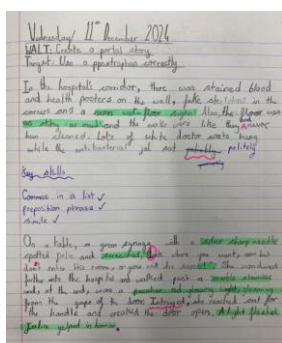 Wednesday 11th December 2024
WALT: Create a portal story
Target: Use a apostrophes correctly
In the hospital's corridor, there was stained blood
and health posters on the wall, fake skeletons in the
corners and a neon wet floor sign! Also, the floor was
as sticky as mud and the walls are like they A never
been cleaned. Lots of white doctor coats hung
while the anti bacterial gel sat politely
Key skills
Commas in a list ✓
preposition phrase ✓
simile ✓
On a table, a green syringe with a silver sharp needle
spotted pale and
into this room, or you will die
further into the hospital and walked past a
and at the end, was a peculiar red glowing light,
from the gaps of the door. Intrigued, she reached out for
the handle and creaked the door open. A light flashed.
India yelped in horror.